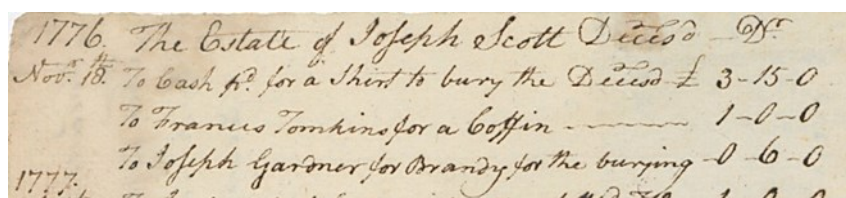 1776. The Estate of Joseph Scott Decesd Dr.
Novr. 18.th To Cash pd. for a Shirt to bury the Decesd £ 3-15-0
To Francis Tomkins for a Coffin 1-0-0
To Joseph Gardner for Brandy for the burying -0-6-0
1777.